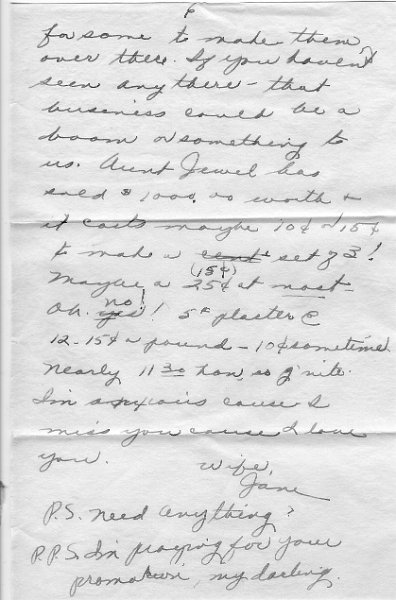 6
for some to make them
over there. If you haven't
seen any there - that
business could be a
boom or something to
us. Aunt Jewel has
sold $1000.00 worth &
it costs maybe 10¢ or 15¢
to make a cent set of 3!
(15¢)
Maybe a 25¢ at most.
Oh. yes no! ! 5# plaster @
12-15¢ a pound - 10¢ sometime.
Nearly 11 30 hon, so g'nite.
I'm anxious cause I
miss you cause I love
you.
Wife,
Jane
P.S. Need anything?
P.P.S. I'm praying for your
promotion, my darling.